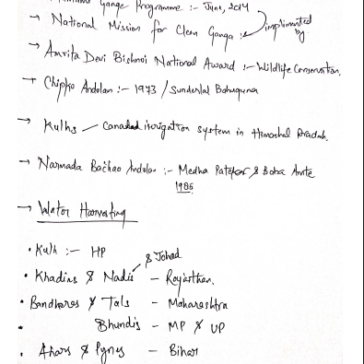 Gange Programme :- June, 2014
→ National Mission for Clean Ganga :- implimented by
→ Amrita Devi Bishnoi National Award :- Wildlife Conservation.
→ Chipko Andolan :- 1973 / Sunderlal Bahuguna
→ Kulhs — Canal irrigation system in Himachal Pradesh.
→ Narmada Bachao Andolan :- Medha Patekar & Baba Amte
1985
→ Water Harvesting
• Kulh :- HP
& Johad
• Khadins & Nadis — Rajasthan.
• Bandharas & Tals — Maharashtra
• Bhundis — MP & UP
• Ahars & Pynes — Bihar